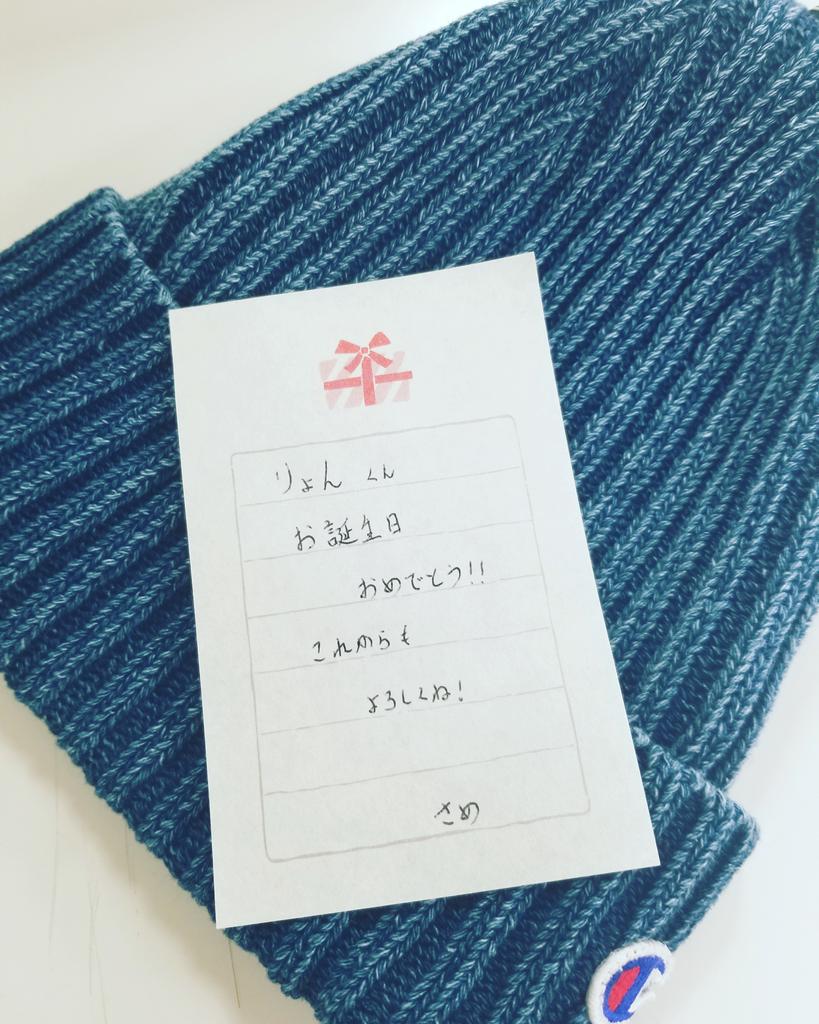 りょん くん
お誕生日
おめでとう!!
これからも
よろしくね!
さめ